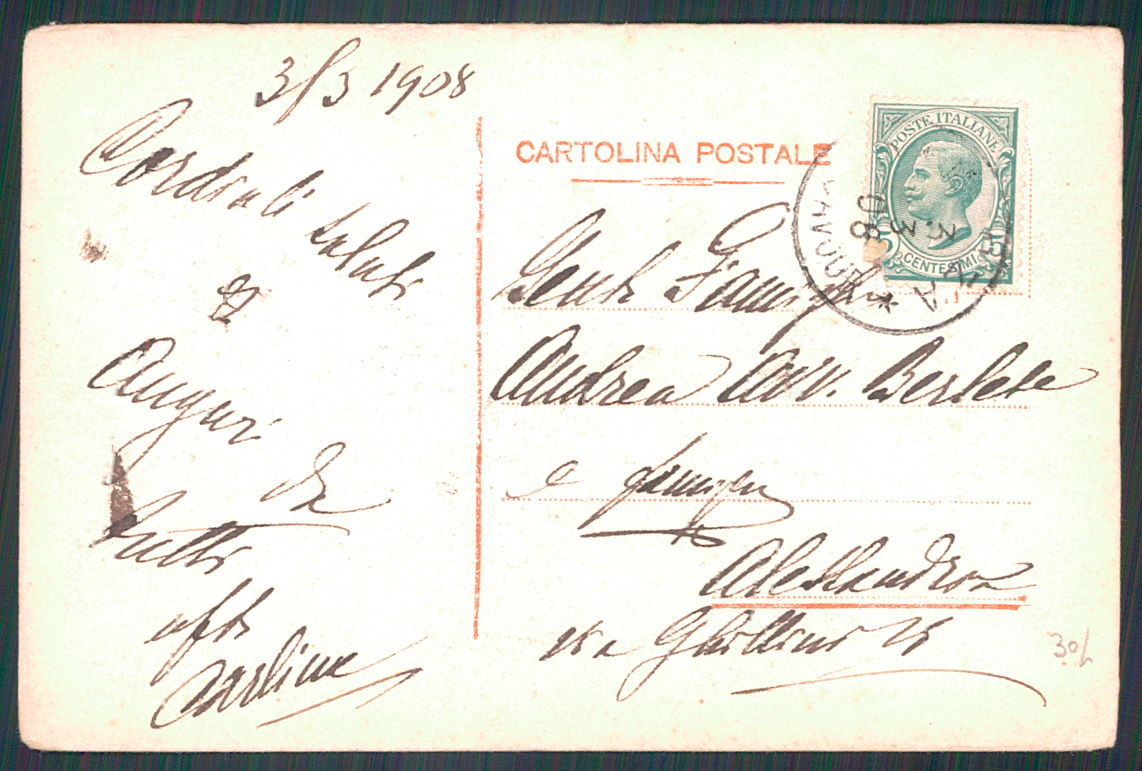 3/3 1908
Cordiali saluti
e
Auguri
da
tutti
aff.
Carlina
CARTOLINA POSTALE
POSTE ITALIANE
CENTESIMI
3. 3
08
Gent. Famiglia
Andrea Avv.
e famiglia
Alessandria
via Ghillini
30L